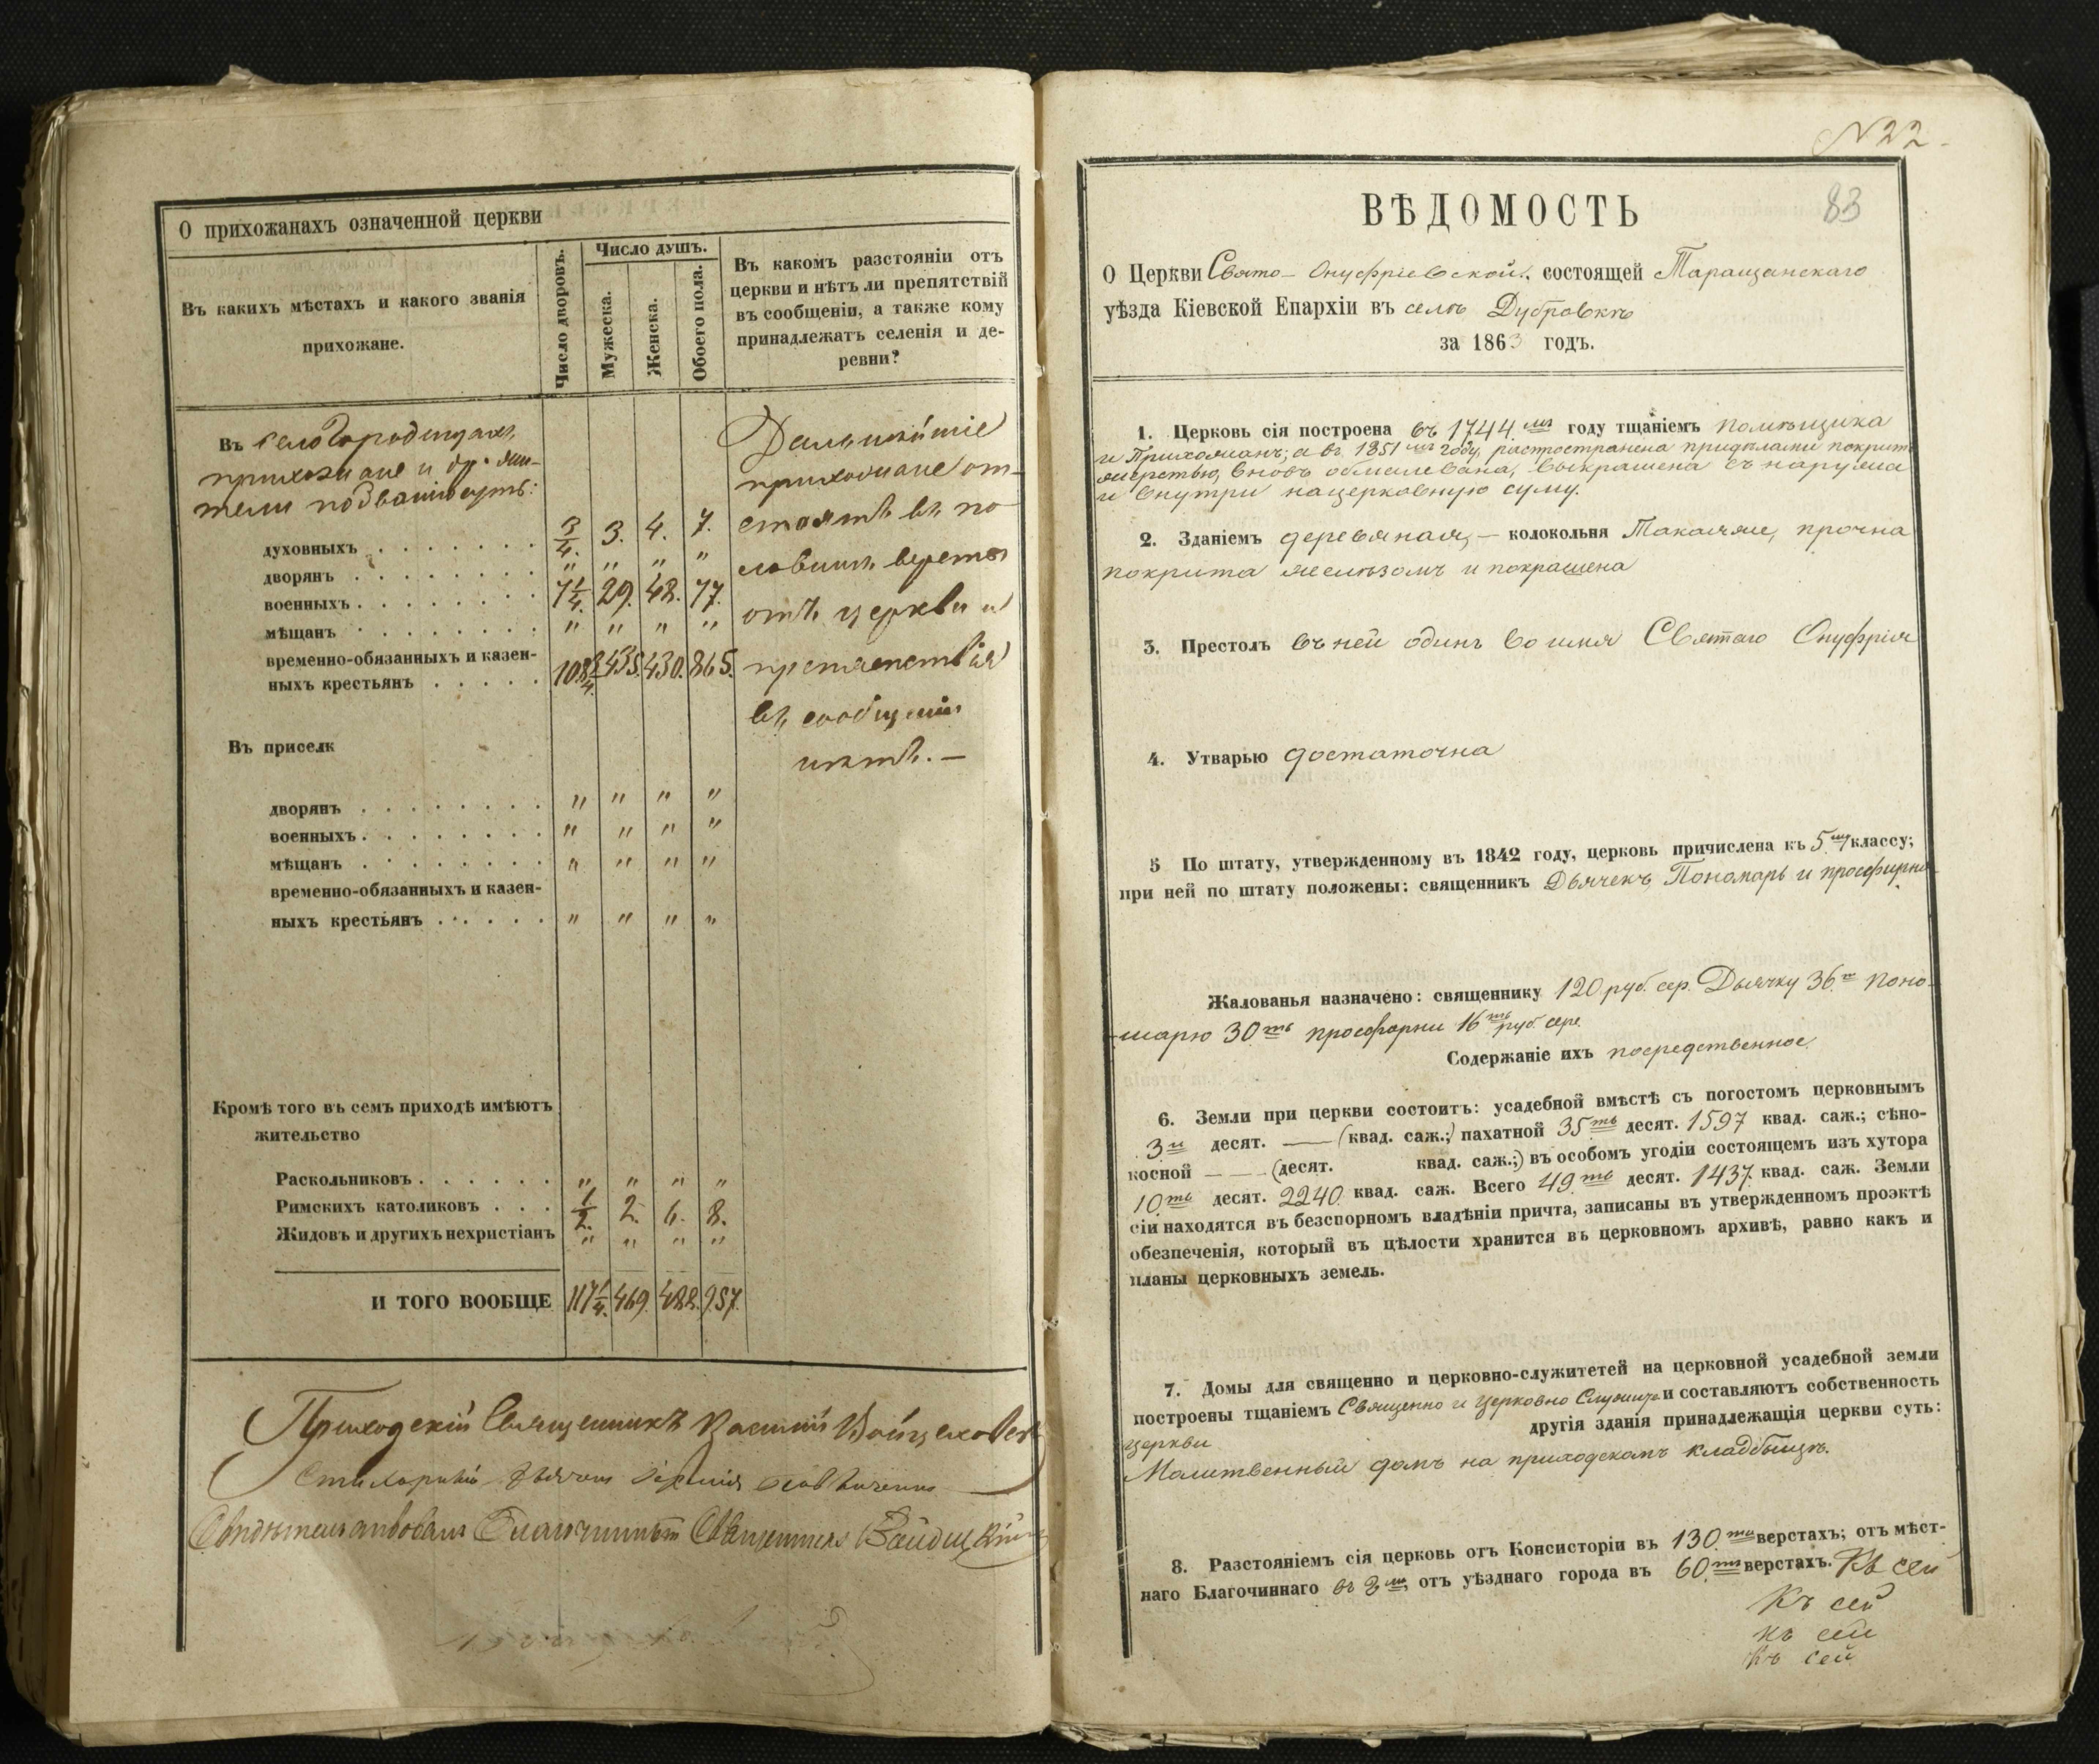 О прихожанахъ означенной церкви
Въ какихъ мѣстахъ и какого званія
прихожане.
Число дворовъ.
Число душъ.
Мужеска.
Женска.
Обоего пола.
Въ какомъ разстояніи отъ
церкви и нѣтъ ли препятствій
въ сообщеніи, а также кому
принадлежатъ селенія и де-
ревни?
Въ
прихожане и
духовныхъ 3/4. 3. 4. 7.
дворянъ " " " "
военныхъ 7 1/4. 29. 48. 77.
мѣщанъ " " " "
временно-обязанныхъ и казен-
ныхъ крестьянъ 108 3/4. 435. 430. 865.
Дальнѣйшіе
прихожане от-
стоятъ въ по-
ловинѣ версты
отъ церкви и
препятствія
въ сообщеніи
нѣтъ. —
Въ приселк
дворянъ " " " "
военныхъ " " " "
мѣщанъ " " " "
временно-обязанныхъ и казен-
ныхъ крестьянъ " " " "
Кромѣ того въ семъ приходѣ имѣютъ
жительство
Раскольниковъ " " " "
Римскихъ католиковъ 1/2. 2. 6. 8.
Жидовъ и другихъ нехристіанъ " " " "
И ТОГО ВООБЩЕ 117 1/4. 469. 488. 957.
Приходскій Священникъ
Свидѣтельствовалъ Благочинный Священникъ
N 22
83
ВѢДОМОСТЬ
О Церкви Свято-Онуфріевской. состоящей Таращанскаго
уѣзда Кіевской Епархіи въ селѣ Дубровкѣ
за 1863 годъ.
1. Церковь сія построена въ 1744.мъ году тщаніемъ помѣщика
и Прихожанъ; а въ 1851мъ году, распространена придѣлами покрит
жерстью, вновъ обмалевана, выкрашена съ наружи
и внутри нацерковную суму.
2. Зданіемъ деревяная, — колокольня Такаяже, прочна
покрита желѣзомъ и покрашена
3. Престолъ въ ней одинъ во имя Святаго Онуфрія
4. Утварью достаточна
5 По штату, утвержденному въ 1842 году, церковь причислена къ 5.му классу;
при ней по штату положены: священникъ Дьячекъ, Пономарь и просфирня
Жалованья назначено: священнику 120 руб. сер. Дьячку 36.ть Поно-
марю 30ть просфорни 16ть руб. сере.
Содержаніе ихъ посредственное.
6. Земли при церкви состоитъ: усадебной вмѣстѣ съ погостомъ церковнымъ
3и десят. — (квад. саж.;) пахатной 35ть десят. 1597 квад. саж.; сѣно-
косной — — (десят. квад. саж.;) въ особомъ угодіи состоящемъ изъ хутора
10.ть десят. 2240. квад. саж. Всего 49.ть десят. 1437. квад. саж. Земли
сіи находятся въ безспорномъ владѣніи причта, записаны въ утвержденномъ проэктѣ
обезпеченія, который въ цѣлости хранится въ церковномъ архивѣ, равно какъ и
планы церковныхъ земель.
7. Домы для священно и церковно-служитетей на церковной усадебной земли
построены тщаніемъ Священно и Церковно Служите. и составляютъ собственность
церкви другія зданія принадлежащія церкви суть:
Молитвенный домъ на приходскомъ кладбыщѣ.
8. Разстояніемъ сія церковь отъ Консисторіи въ 130.ти верстахъ; отъ мѣст-
наго Благочиннаго въ 2хъ отъ уѣзднаго города въ 60.ти верстахъ. Къ сей
Къ сей
Къ сей
Къ сей